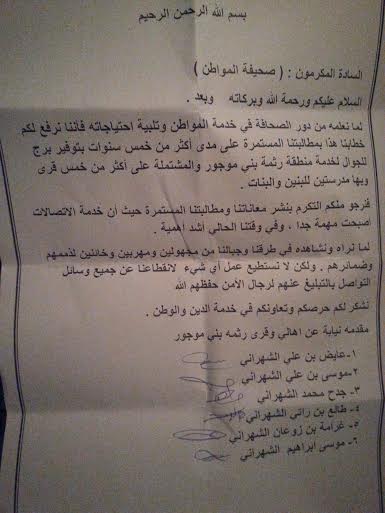 بسم الله الرحمن الرحيم
السادة المكرمون : ( صحيفة المواطن )
السلام عليكم ورحمة الله وبركاته وبعد .
لما نعلمه من دور الصحافة في خدمة المواطن وتلبية احتياجاته فأننا نرفع لكم
خطابنا هذا بمطالبتنا المستمرة على مدى أكثر من خمس سنوات بتوفير برج
للجوال لخدمة منطقة رثمة بني موجور والمشتملة على أكثر من خمس قرى
وبها مدرستين للبنين والبنات .
فنرجو منكم التكرم بنشر معاناتنا ومطالبتنا المستمرة حيث أن خدمة الاتصالات
اصبحت مهمة جدا ، وفي وقتنا الحالي أشد أهمية .
لما نراه ونشاهده في طرقنا وجبالنا من مجهولين ومهربين وخائنين لذممهم
وضمائرهم . ولكن لا نستطيع عمل أي شيء لانقطاعنا عن جميع وسائل
التواصل بالتبليغ عنهم لرجال الأمن حفظهم الله
نشكر لكم حرصكم وتعاونكم في خدمة الدين والوطن .
مقدمه نيابة عن اهالي وقرى رثمه بني موجور
١-عايض بن علي الشهراني
٢-موسى بن علي الشهراني
٣- جدح محمد الشهراني
٤- طالع بن راني الشهراني
٥- غرامة بن زوعان الشهراني
٦- موسى ابراهيم الشهراني